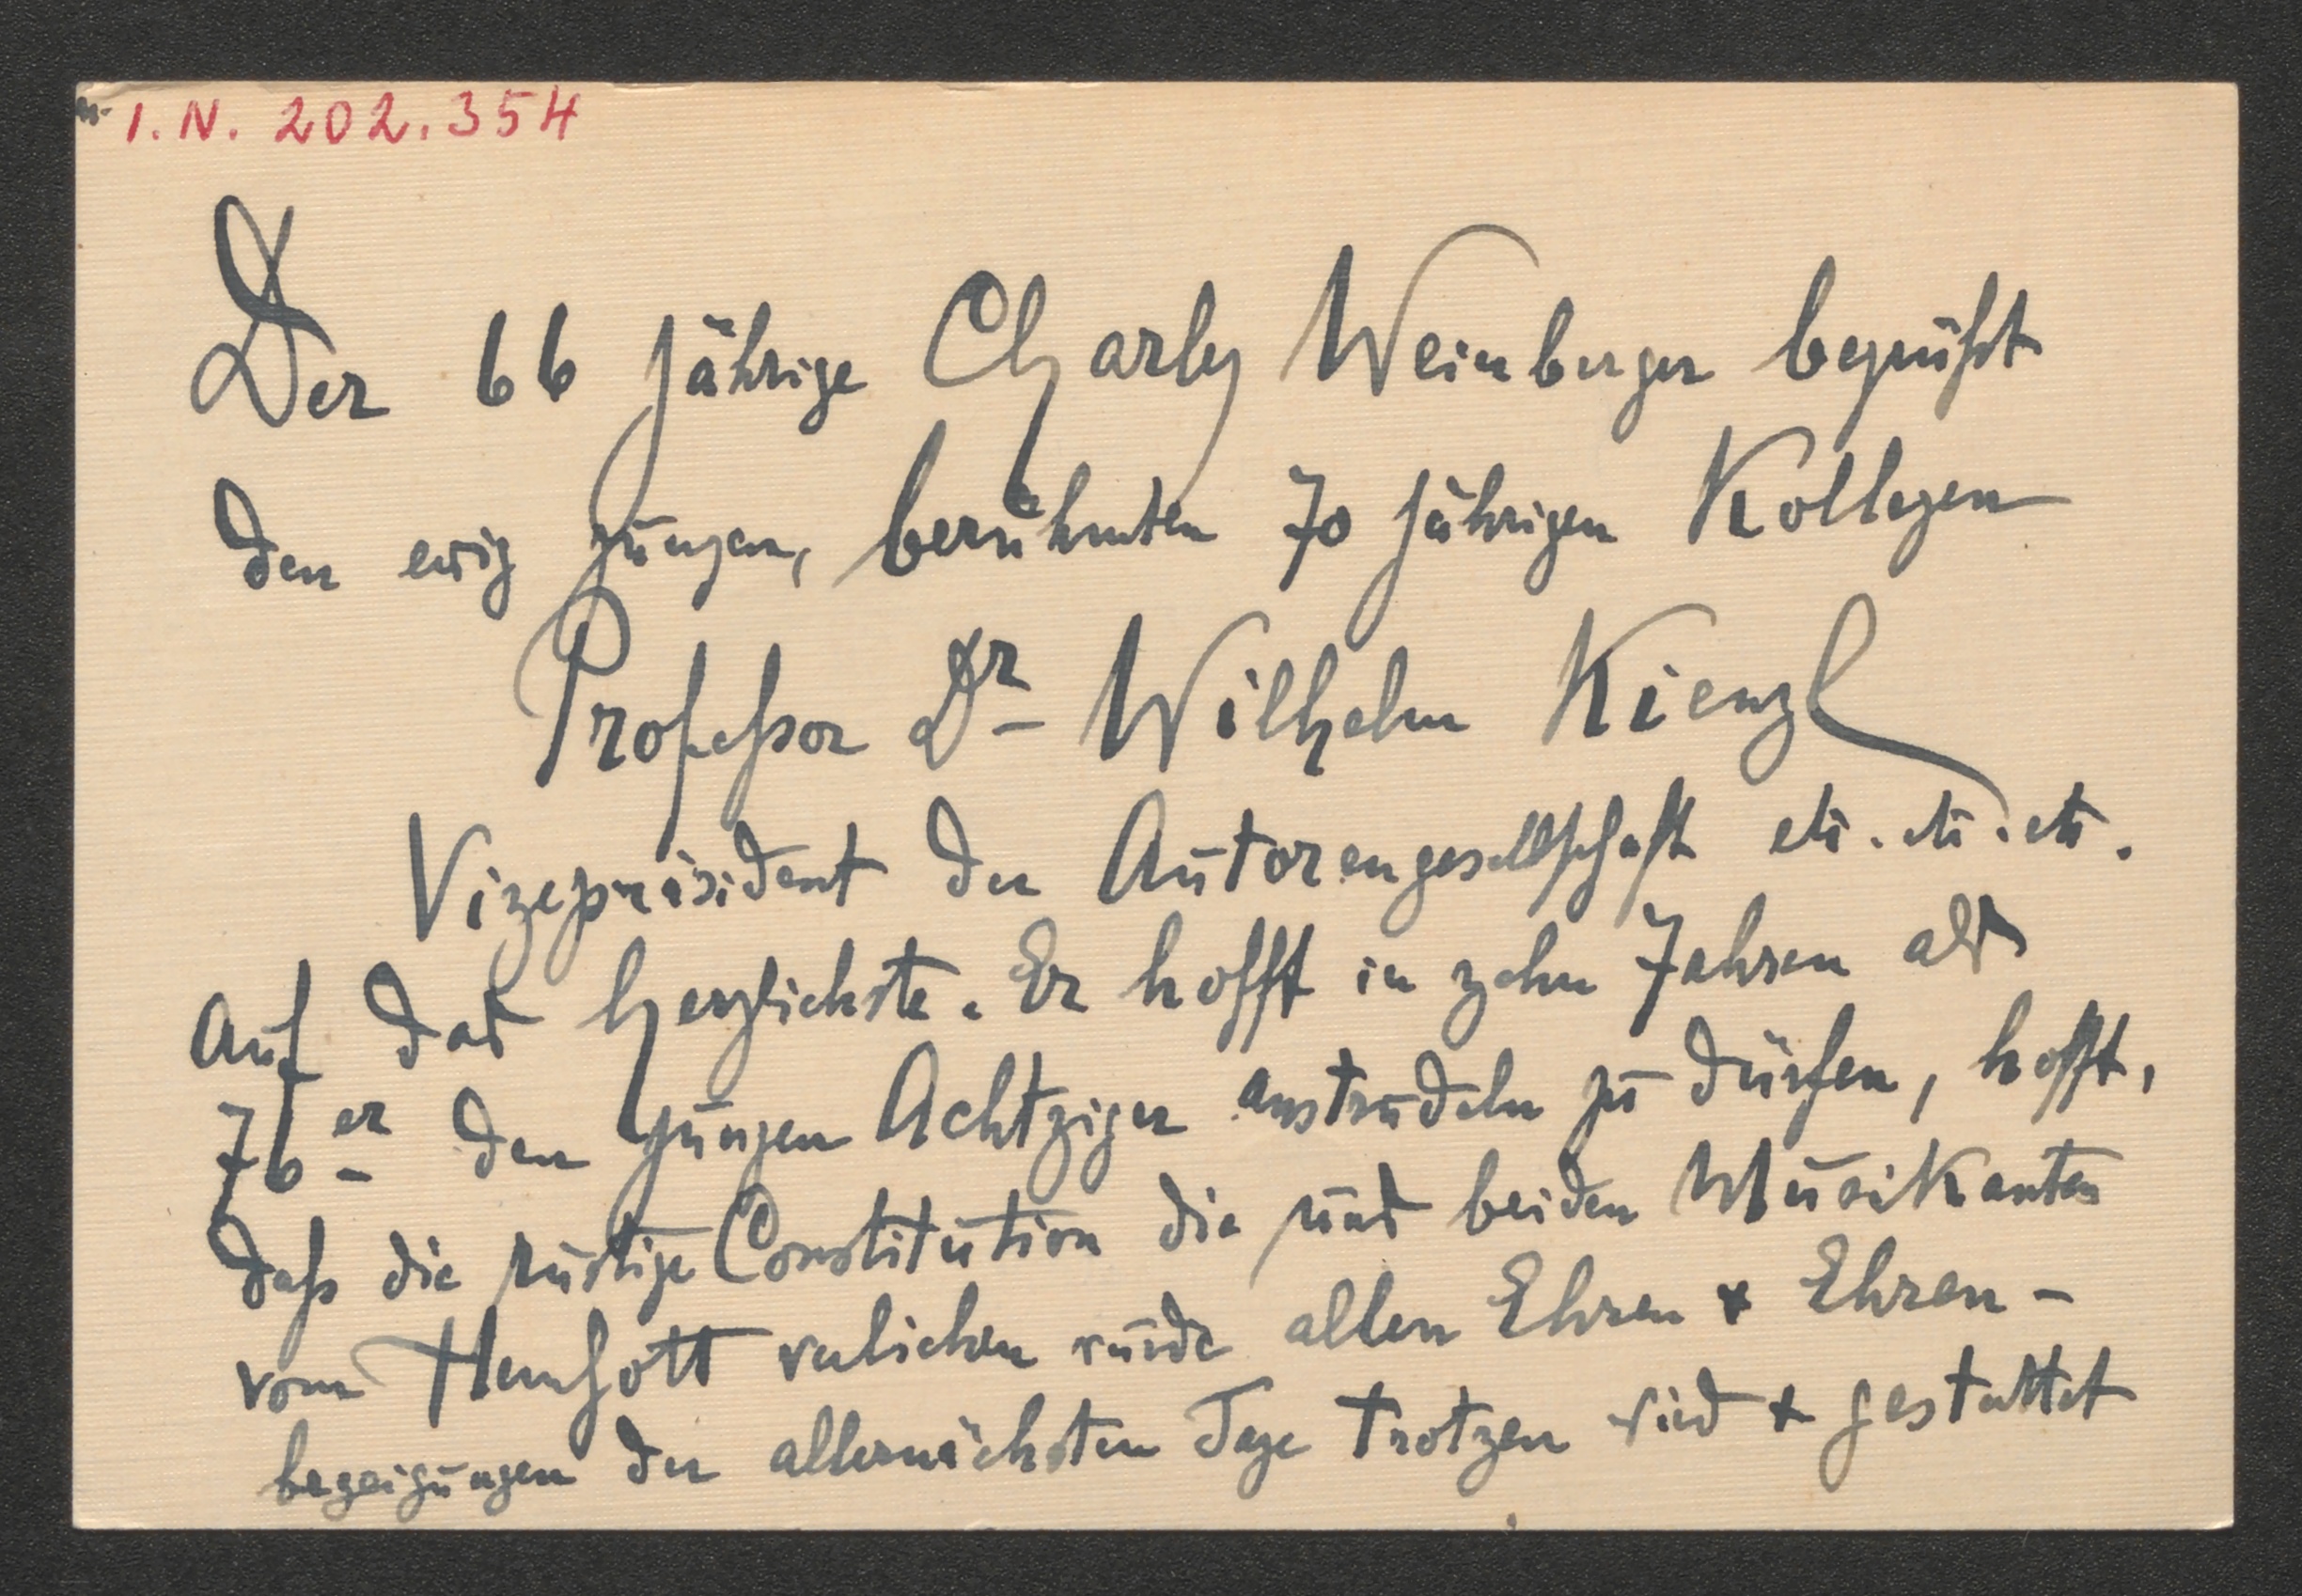 I. N. 202.354
Der 66 jährige Charley Weinberger begrüßt
den ewig jungen, berühmten 70 jährigen Kollegen
Professor Dr Wilhelm Kienzl
Vizepräsident der Autorengesellschaft etc. etc. etc.
auf das herzlichste. Er hofft in zehn Jahren als
76er den jungen Achtziger anstrudeln zu dürfen, hofft,
daß die rüstige Constitution die uns beiden Musikanten
vom Herrgott verliehen wurde allen Ehren & Ehren-
bezeigungen der allernächsten Tage trotzen wird & gestattet